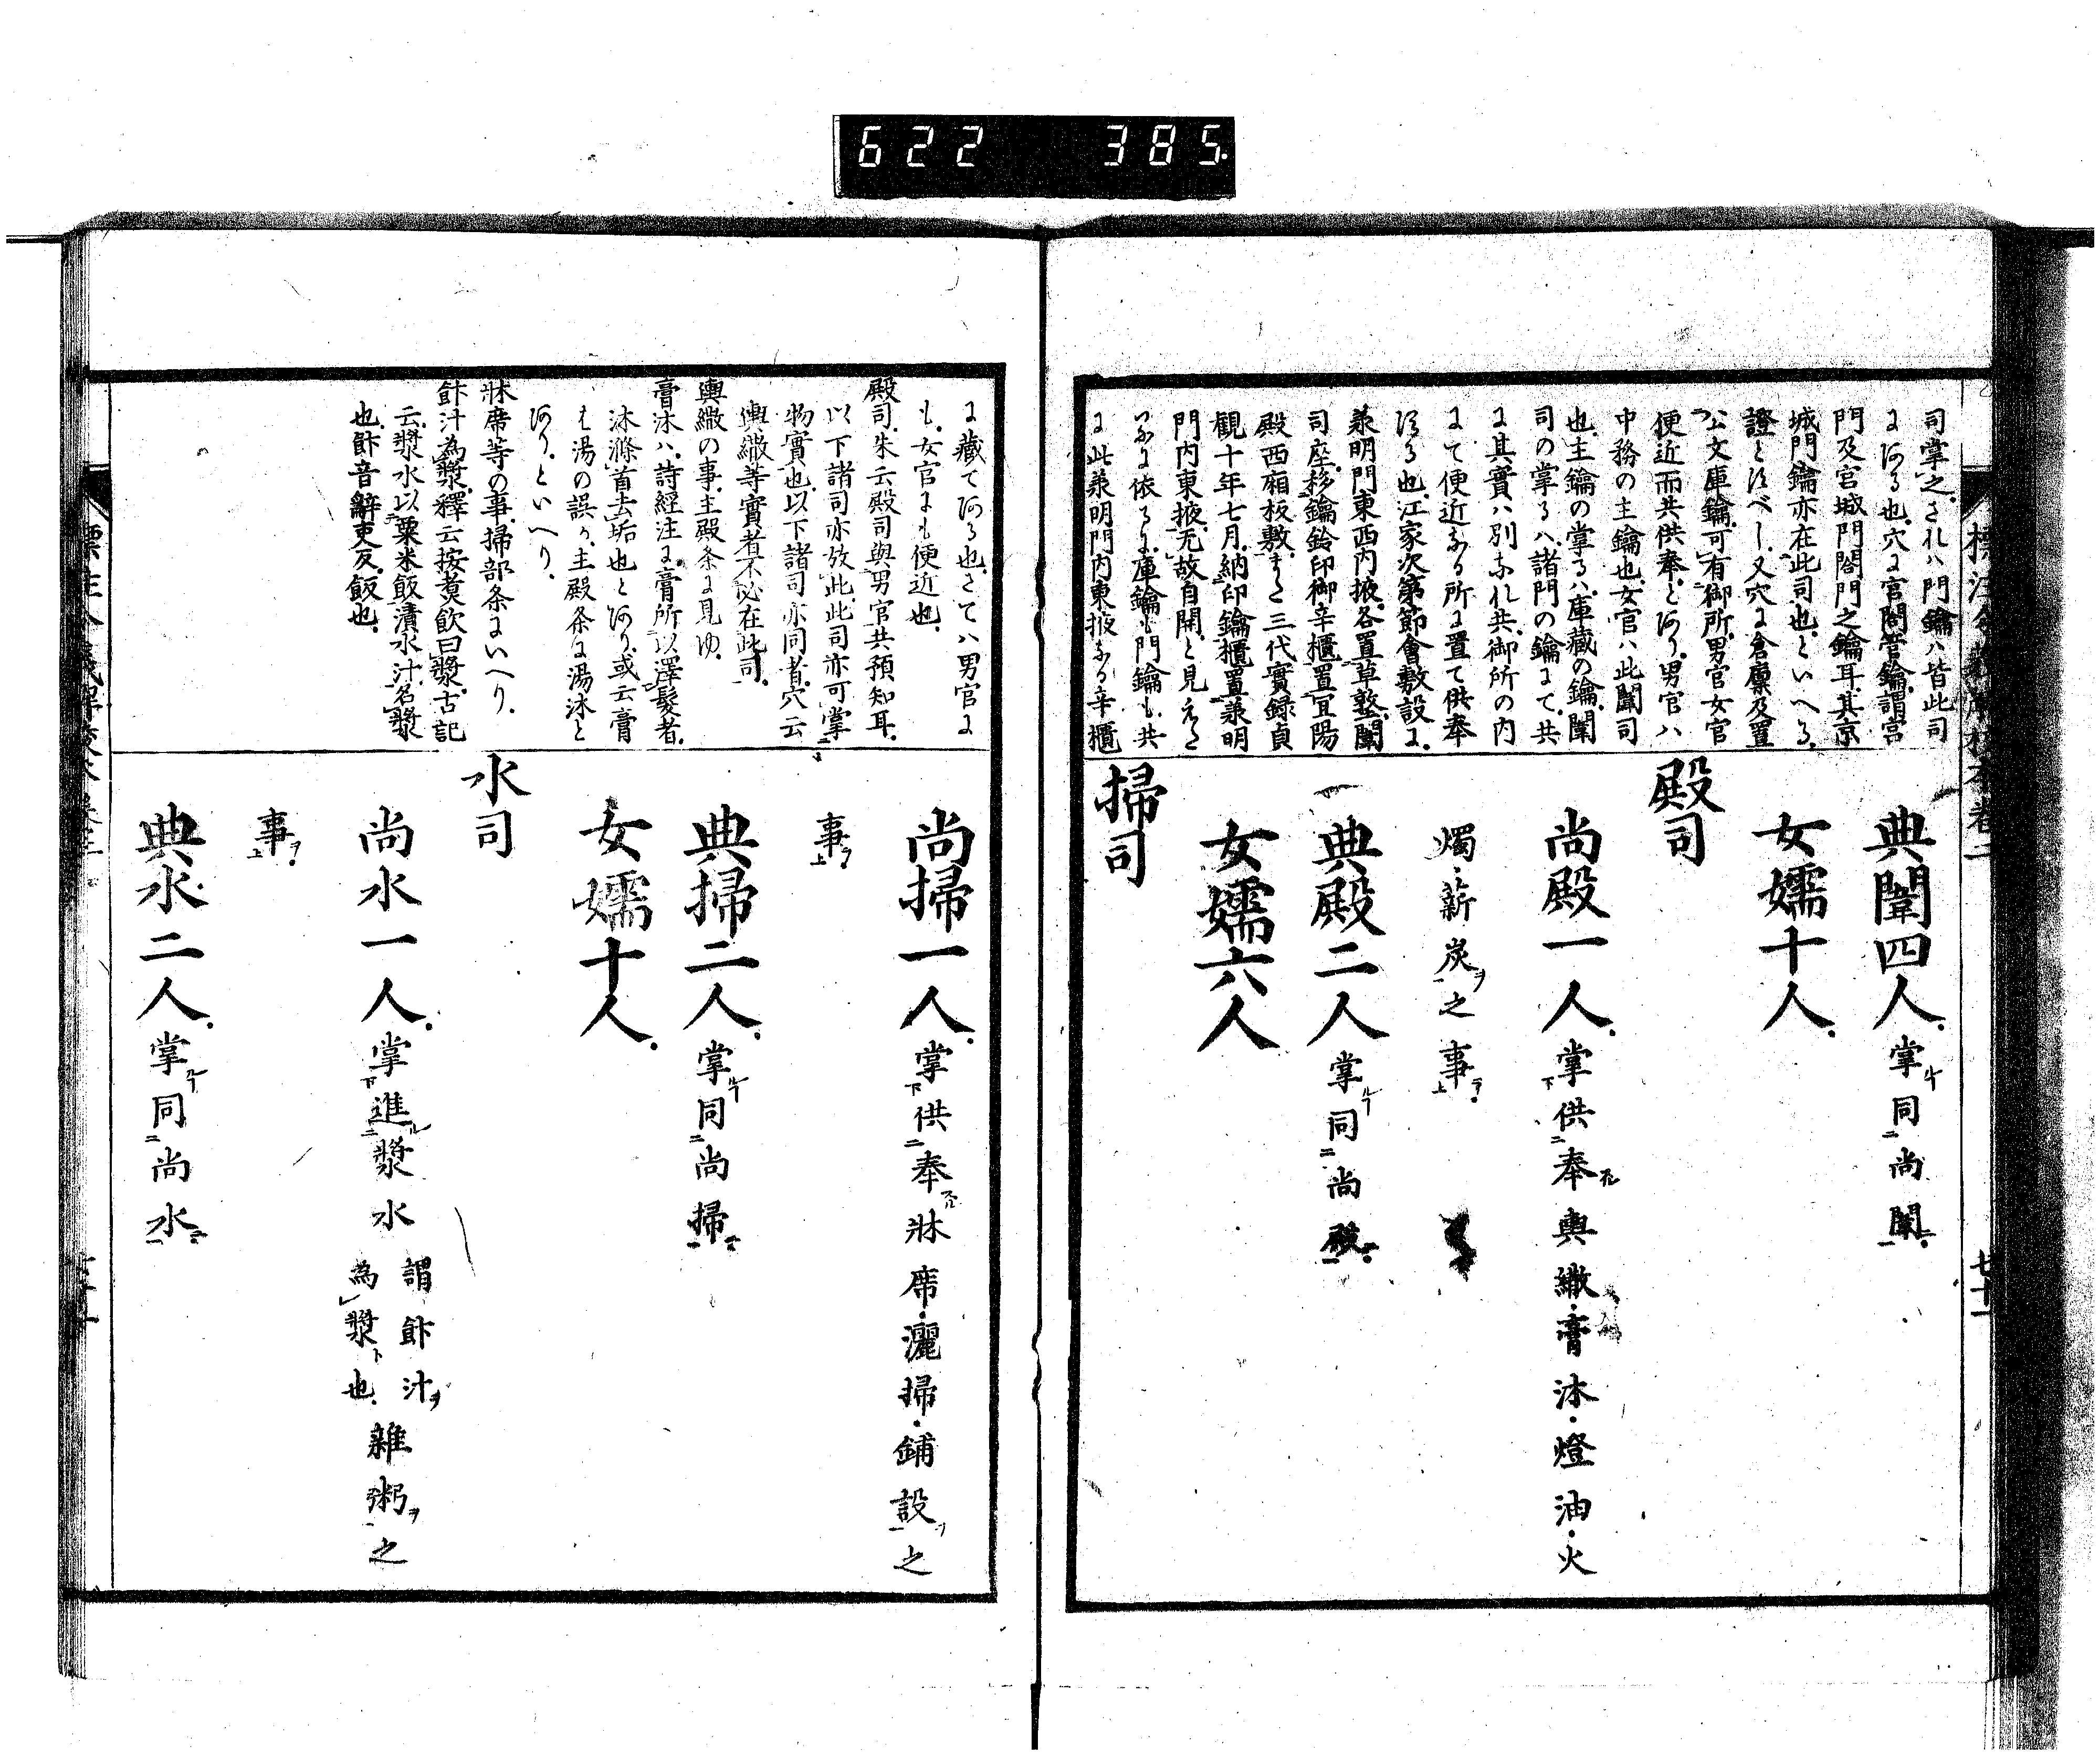 622 385.
司掌之。されハ門鑰ハ皆此司
にある也。穴に宮閤管鑰謂宮
門及宮城門閤門之鑰耳。其京
城門鑰亦在此司也。といへる。
證とすべし。又穴に倉廩及置
公文庫鑰。可有御所。男官女官
便近而共供奉。とあり。男官ハ
中務の主鑰也。女官ハ此闈司
也。主鑰の掌るハ庫藏の鑰。闈
司の掌るハ諸門の鑰にて。共
に其實ハ別なれ共。御所の内
にて便近なる所に置て供奉
する也。江家次第節會敷設に。
兼明門東西内掖。各置草墪。闈
司座。移鑰鈴印御辛櫃。置宜陽
殿西廂板敷。また三代實録貞
觀十年七月。納印鑰櫃。置兼明
門内東掖。无故自開。と見えた
るに依るに。庫鑰も門鑰も。共
に此兼明門内東掖なる辛櫃
典闈四人。掌同尚闈。
女嬬十人。
殿司
尚殿一人。掌供奉輿繖・膏沐・燈油・火
燭・薪炭之事。
典殿二人掌同尚殿。
女嬬六人
掃司
に藏てある也。さてハ男官に
も。女官にも便近也。
殿司。朱云殿司與男官共預知耳。
以下諸司亦放此。此司亦可掌
物實也。以下諸司亦同者。穴云
輿繖等實者不必在此司。
輿繖の事。主殿条に見ゆ。
膏沐ハ。詩經注に。膏所以澤髮者。
沐滌首去垢也とあり。或云膏
は湯の誤か。主殿条に湯沐と
あり。といへり。
牀席等の事。掃部条にいへり。
飰汁為漿。釋云按煮飲曰漿。古記
云。漿水以粟米飯漬水汁。名漿
也。飰音辭吏反。飯也。
尚掃一人。掌供奉牀席・灑掃・鋪設之
事。
典掃二人。掌同尚掃。
女嬬十人。
水司
尚水一人。掌進漿水謂飰汁為漿也。雜粥之
事。
典水二人。掌同尚水。